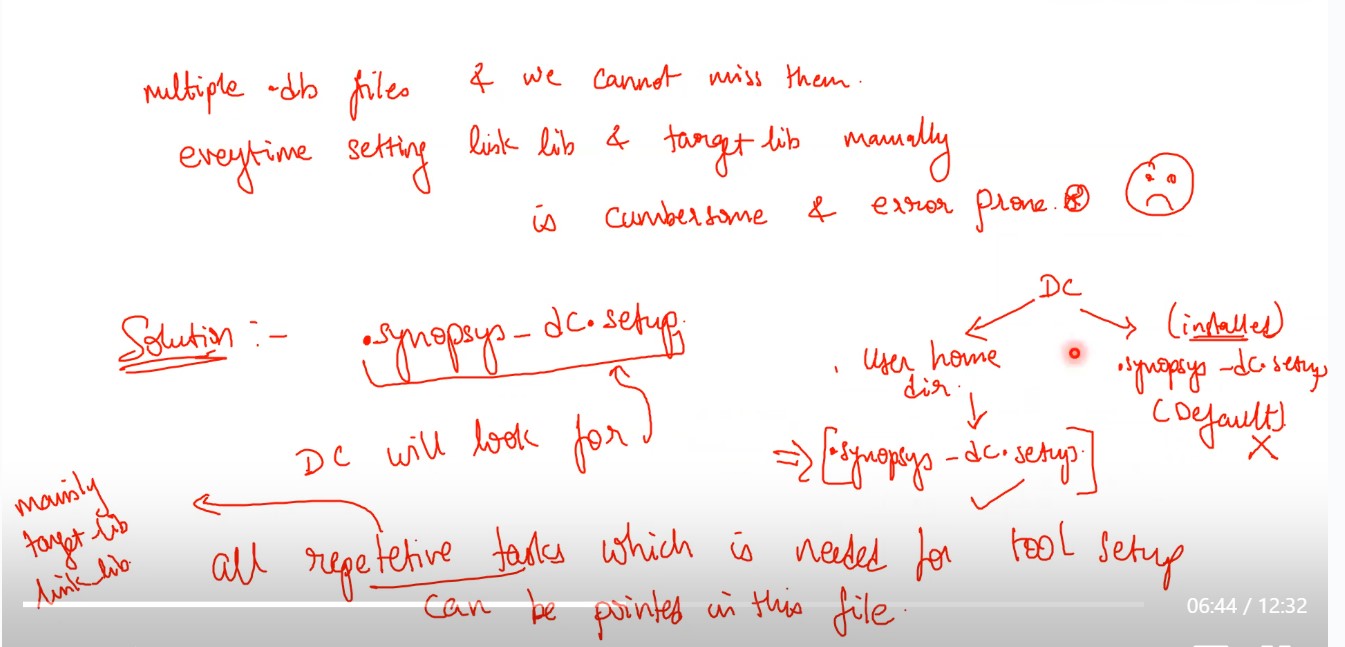 multiple .db files & we cannot miss them.
eveytime setting link lib & target lib manually
is cumbersome & error prone.
DC
Solution :- .synopsys_dc.setup.
User home dir.
(installed)
.synopsys_dc.setup
(Default)
X
DC will look for
⇒ [.synopsys_dc.setup.]
mainly
target lib
link_lib.
all repetetive tasks which is needed for tool setup
can be pointed in this file.
06:44 / 12:32